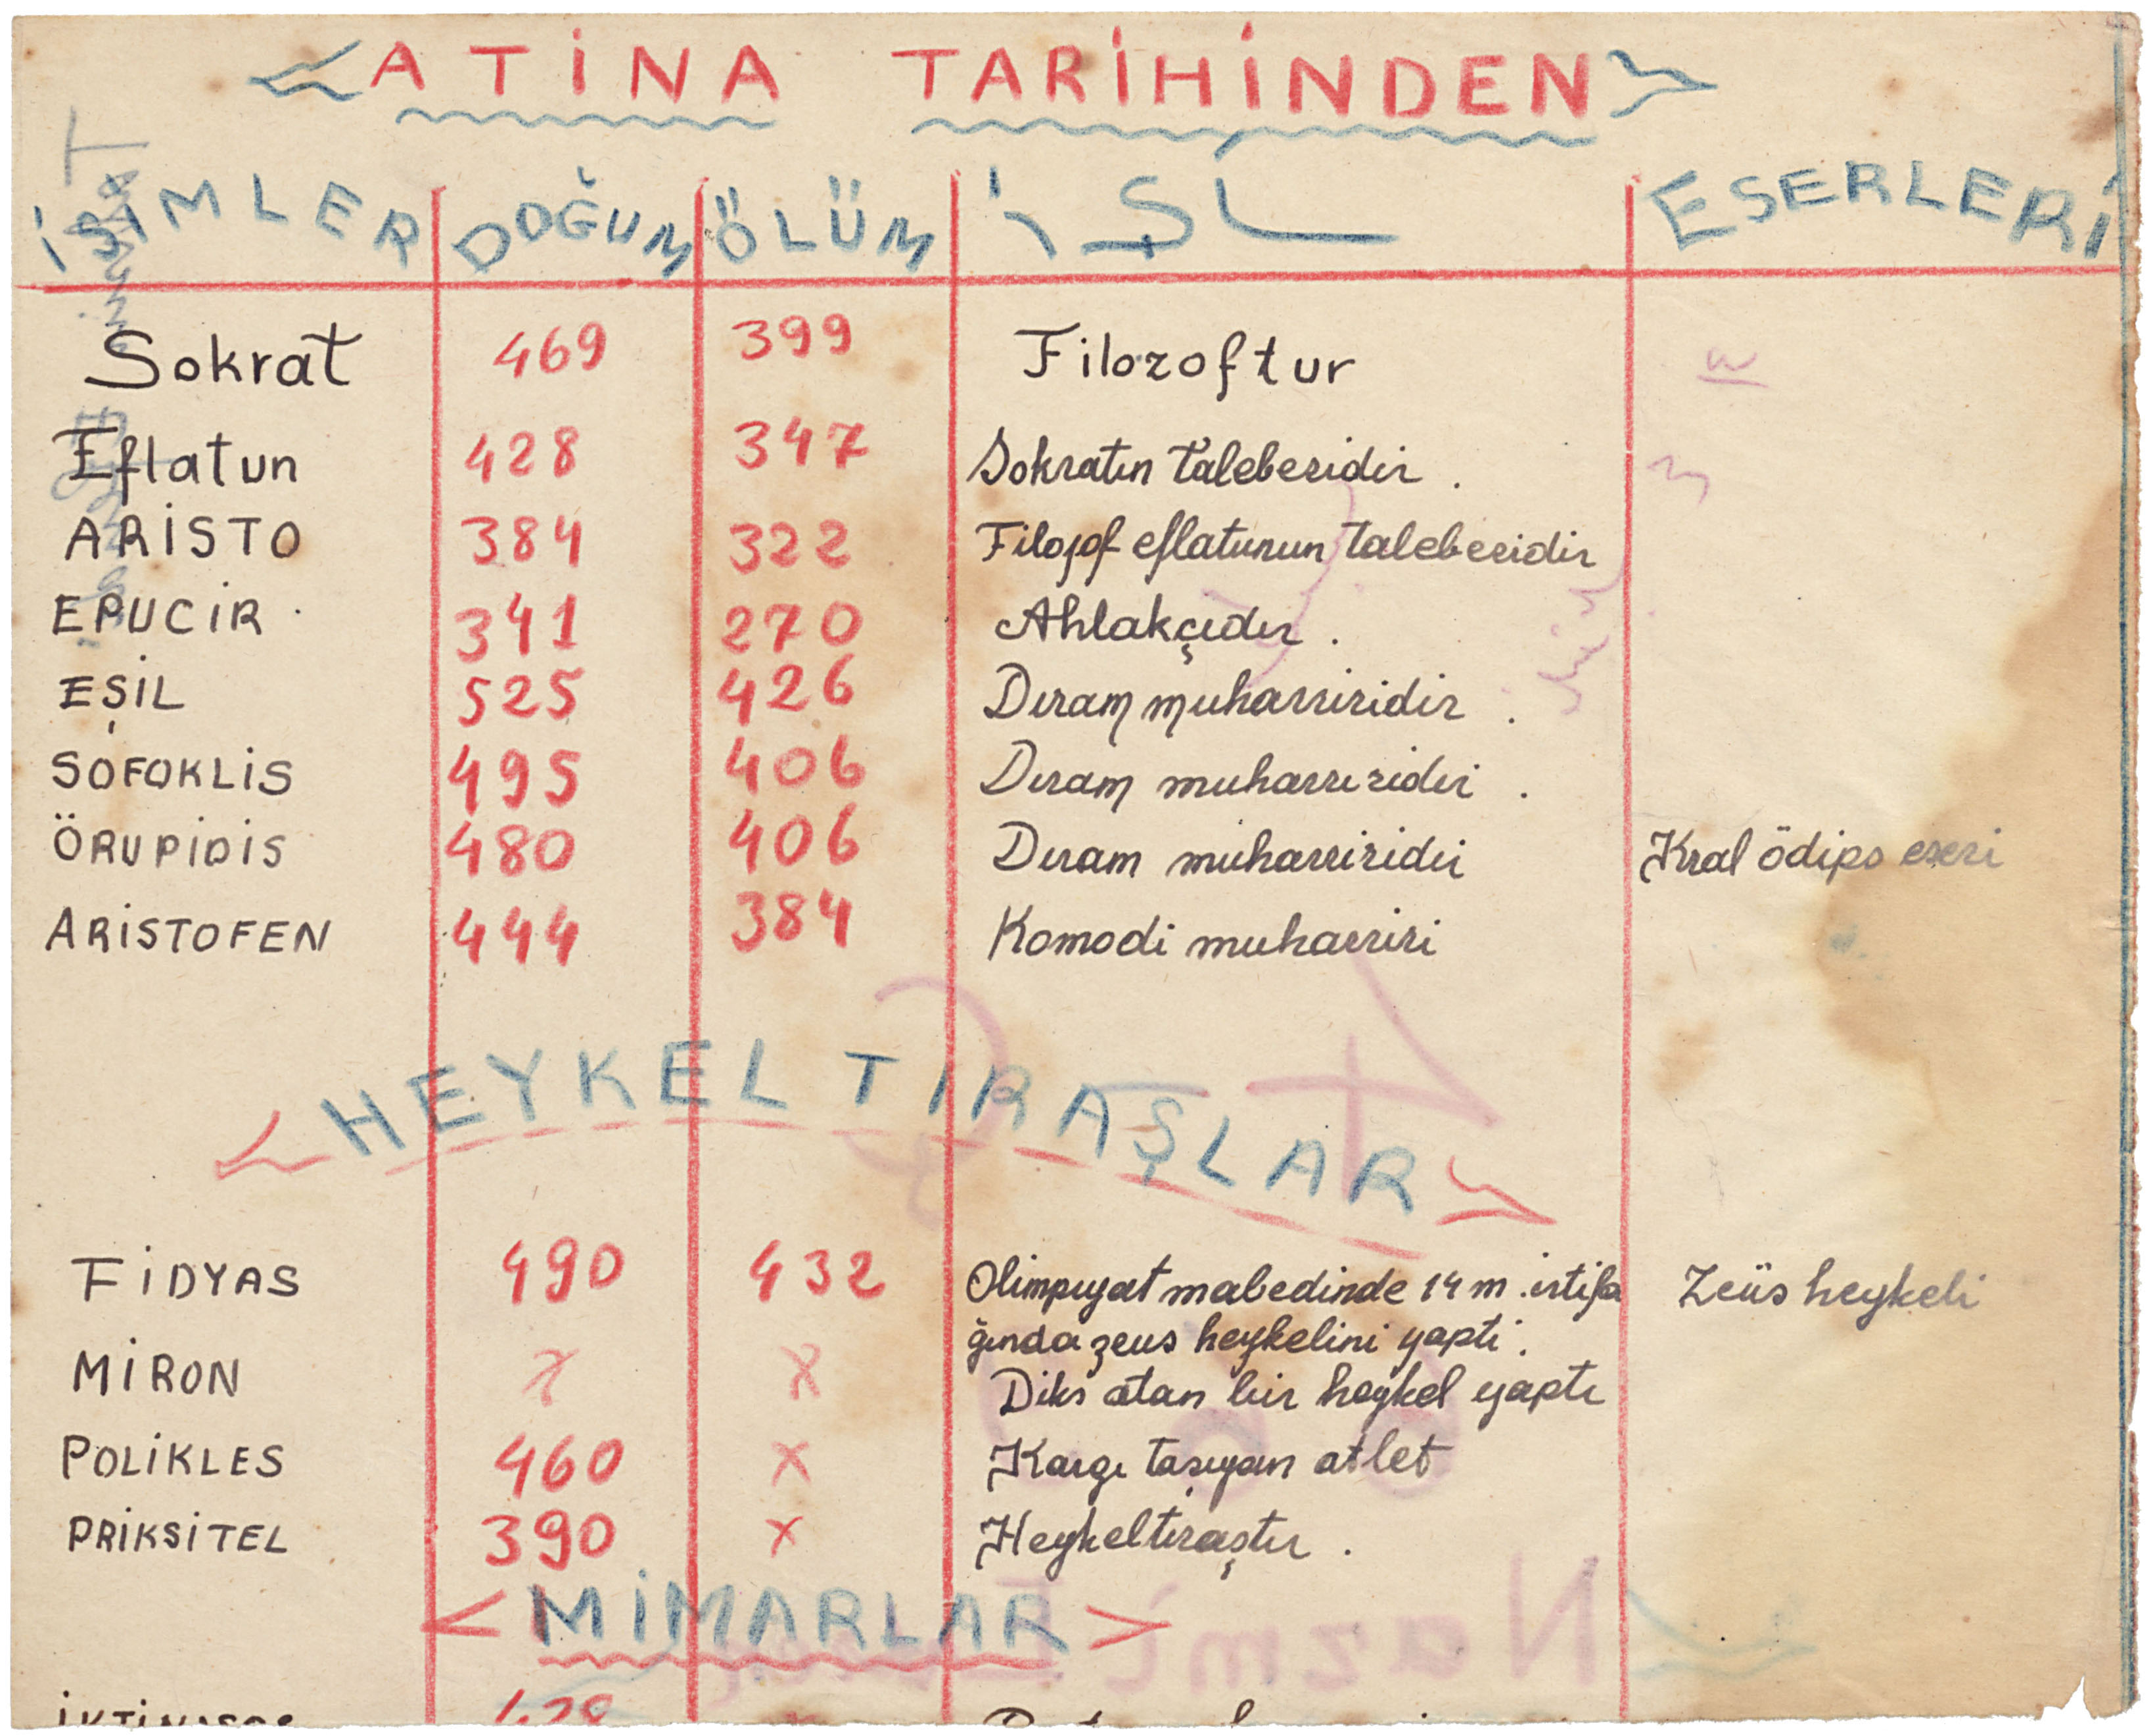 ATİNA TARİHİNDEN
İSİMLER DOĞUM ÖLÜM İŞİ ESERLERİ
Sokrat 469 399 Filozoftur
Eflatun 428 347 Sokratın talebesidir .
ARİSTO 384 322 Filozof eflatunun talebesidir
EPUCİR 341 270 Ahlakçıdır .
EŞİL 525 426 Dıram muharriridir .
SOFOKLİS 495 406 Dıram muharrıridir .
ÖRUPİDİS 480 406 Dıram muharriridir Kral ödips eseri
ARİSTOFEN 444 384 Komodi muharriri
HEYKEL TIRAŞLAR
FİDYAS 490 432 Olimpıyat mabedinde 14 m . irtifa Zeüs heykeli
ğında zeus heykelini yapti .
MİRON x x Diks atan bir heykel yaptı
POLİKLES 460 x Kargı taşıyan atlet
PRİKSİTEL 390 x Heykeltıraştır .
< MİMARLAR >
Nazmi